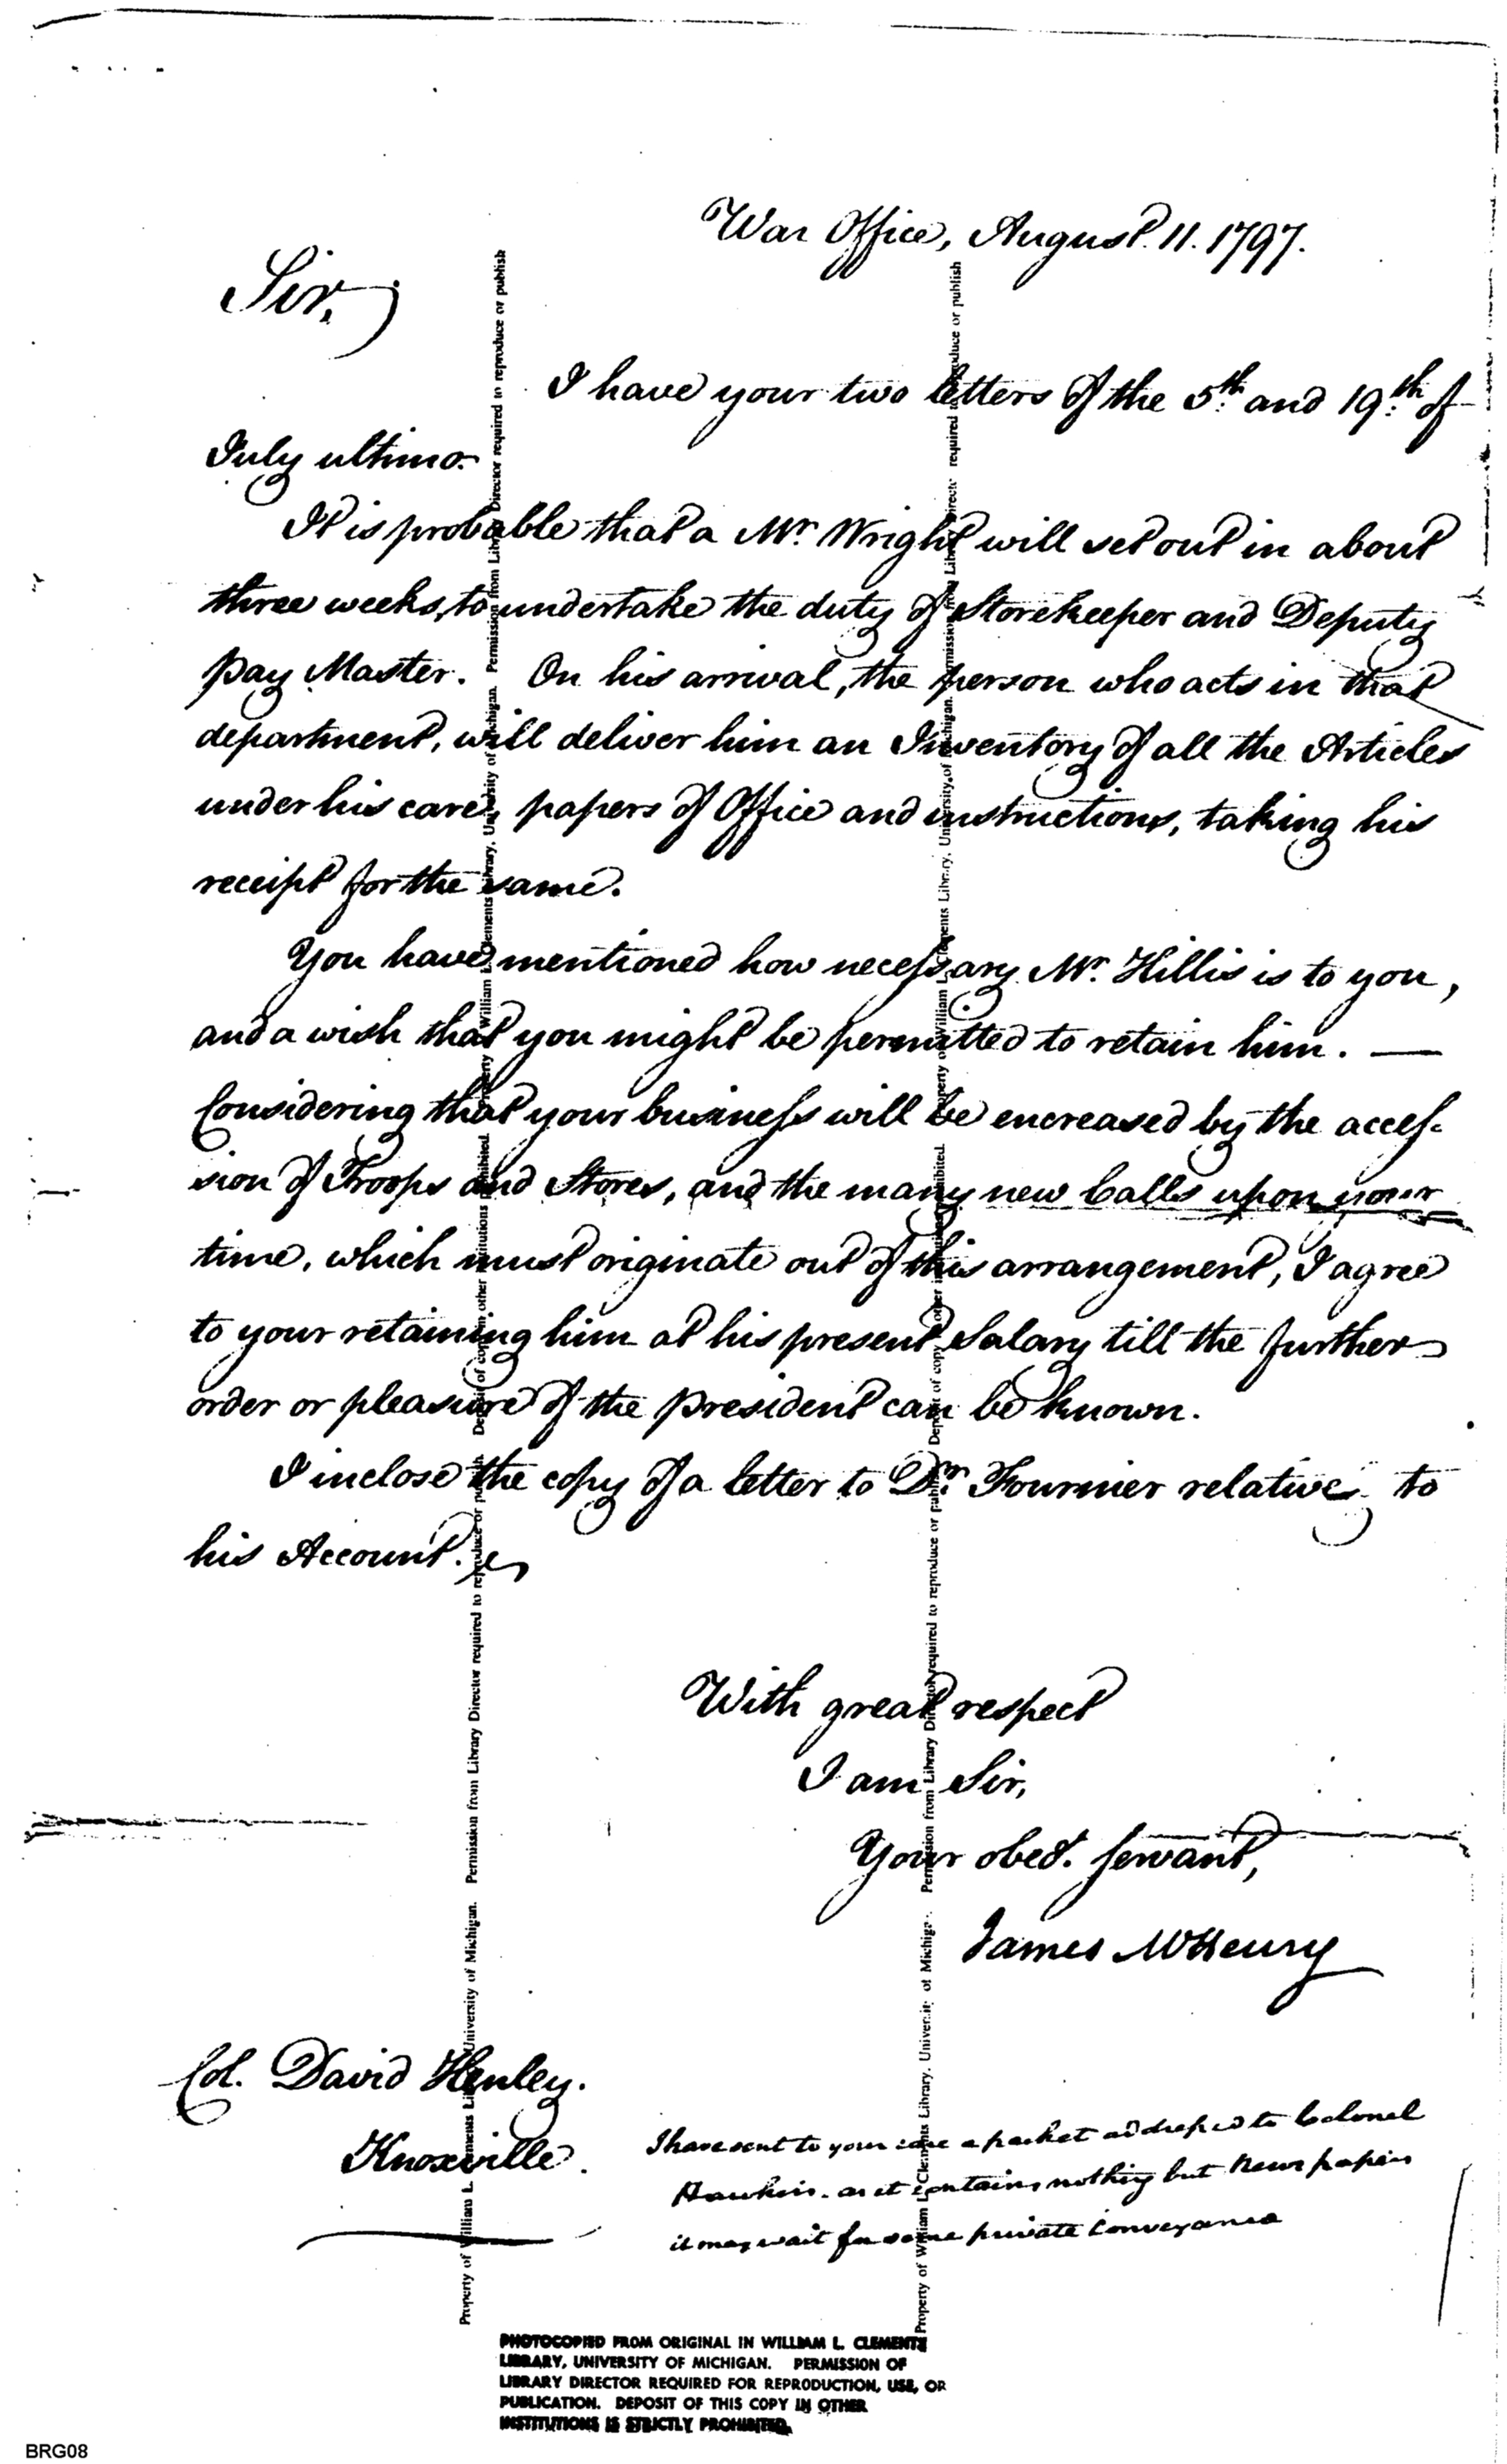 War Office, August. 11. 1797.
Sir,
I have your two letters of the 5th. and 19th. of
July ultimo.
It is probable that a Mr. Wright will set out in about
three weeks, to undertake the duty of Storekeeper and Deputy
Pay Master. On his arrival, the person who acts in that
department, will deliver him an Inventory of all the Articles
under his care, papers of Office and instructions, taking his
receipt for the same.
You have mentioned how necessary Mr. Hillis is to you,
and a wish that you might be permitted to retain him. —
Considering that your business will be encreased by the acces-
sion of Troops and Stores, and the many new Calls upon your
time, which must originate out of this arrangement, I agree
to your retaining him at his present Salary till the further
order or pleasure of the President can be known.
I inclose the copy of a letter to Dr. Fournier relative to
his Account.
With great respect
I am Sir,
Your obed. servant,
James McHenry
Col. David Henley.
Knoxville.
I have sent to your care a packet addressed to Colonel
Hawkins. as it contains nothing but Newspapers
it may wait for some private conveyance
Property of William L. Clements Library, University of Michigan. Permission from Library Director required to reproduce or publish. Deposit of copy in other institutions prohibited. Property of William L. Clements Library, University of Michigan. Permission from Library Director required to reproduce or publish
Property of William L. Clements Library, University of Michigan. Permission from Library Director required to reproduce or publish. Deposit of copy in other institutions prohibited. Property of William L. Clements Library, University of Michigan. Permission from Library Director required to reproduce or publish
PHOTOCOPIED FROM ORIGINAL IN WILLIAM L. CLEMENTS
LIBRARY, UNIVERSITY OF MICHIGAN. PERMISSION OF
LIBRARY DIRECTOR REQUIRED FOR REPRODUCTION, USE, OR
PUBLICATION. DEPOSIT OF THIS COPY IN OTHER
INSTITUTIONS IS STRICTLY PROHIBITED.
BRG08